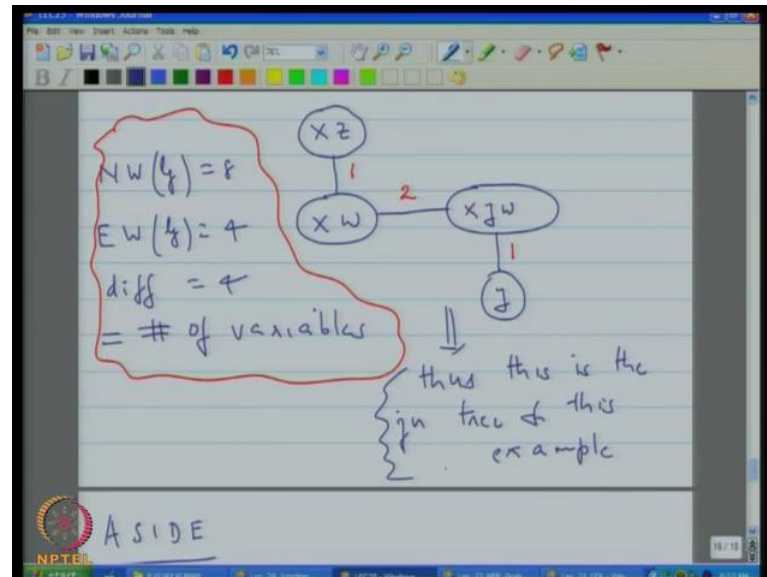 LEC25 - Windows Journal
File Edit View Insert Actions Tools Help
76%
B I
x z
1
N W (y) = 8
x w
2
x y w
E W (y) = 4
1
diff = 4
y
= # of variables
thus this is the
jn tree of this
example
ASIDE
NPTEL
16 / 18